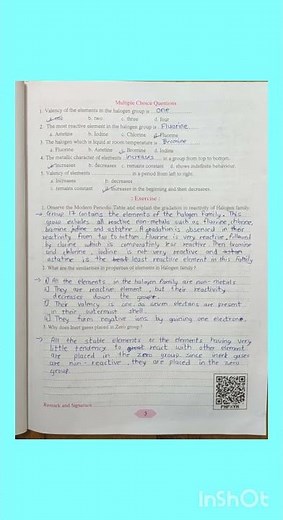 Multiple Choice Questions
1. Valency of the elements in the halogen group is one
a. one b. two c. three d. four
2. The most reactive element in the halogen group is Fluorine
a. Astatine b. Iodine c. Chlorine d. Fluorine
3. The halogen which is liquid at room temperature is Bromine
a. Fluorine b. Astatine c. Bromine d. Iodine
4. The metallic character of elements increases in a group from top to bottom.
a. increases b. decreases c. remains constant d. shows indefinite behaviour
5. Valency of elements in a period from left to right.
a. increases b. decreases
c. remains constant d. increases in the beginning and then decreases.
Exercise
1. Observe the Modern Periodic Table and explain the gradation in reactivity of Halogen family.
→ Group 17 contains the elements of the halogen family. This
group exhibits all reactive non-metals such as fluorine, chlorine,
bromine, iodine and astatine. A gradation is observed in their
reactivity from top to bottom. Fluorine is very reactive, followed
by chlorine which is comparatively less reactive. Then bromine
and chlorine, iodine is not very reactive and
astatine is the least reactive element in this family.
2. What are the similarities in properties of elements in Halogen family?
→ i) All the elements in the halogen family are non-metals.
ii) They are reactive element, but their reactivity
decreases down the group.
iii) Their valency is one as seven eletrons are present
in their outermost shell.
iv) They form negative ions by gaining one electron.
3. Why does inert gases placed in Zero group?
→ All the stable elements or the elements having very
little tendency to react with other element
are placed in the zero group. Since inert gases
are non-reactive, they are placed in the zero
group.
Remark and Signature
3
InShOt